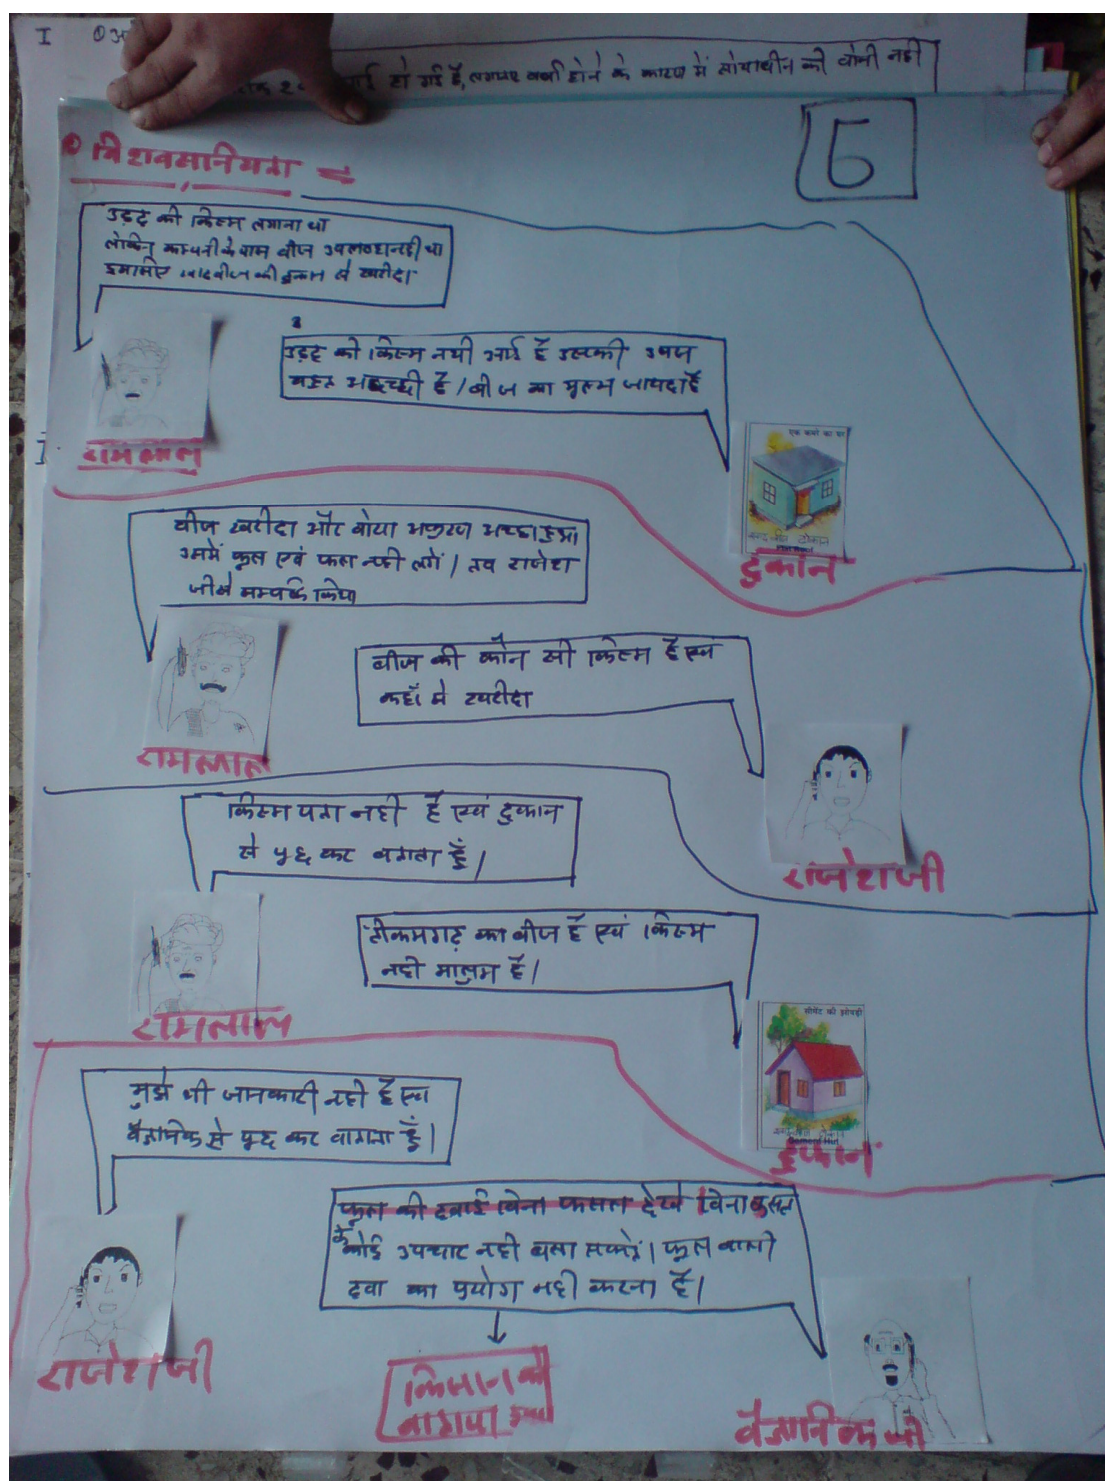 I
हो गई है, लगातार वर्षा होने के कारण में सोयाबीन की बोनी नही
5
विशवसनियता =
उड़द की किस्म लगाना था
लेकिन कम्पनी के पास बीज उपलब्ध नही था
इसलिए खाद बीज की दुकान से खरीदा
रामलाल
उड़द की किस्म नयी आई है उसकी उपज
बहुत अच्छी है। बीज का मूल्य जायदा है
एक कमरे का घर
दुकान
बीज खरीदा और बोया अकुरण अच्छा हुआ
उसमें फूल एवं फल नही लगे। तब राजेश
जी से सम्पर्क किया
रामलाल
बीज की कौन सी किस्म है एवं
कहाँ से खरीदा
राजेश जी
किस्म पता नही है एवं दुकान
से पूछ कर बताता हूँ।
रामलाल
टीकमगढ़ का बीज है एवं किस्म
नही मालुम है।
सीमेंट की झोपड़ी
दुकान
मुझे भी जानकारी नही है एवं
वैज्ञानिक से पूछ कर बताता हूँ।
राजेश जी
फूल की दवाई बिना फसल देखे बिना फसल
के कोई उपचार नही बता सकते। फूल वाली
दवा का प्रयोग नही करना है।
किसान को
बताया गया
वैज्ञानिक जी